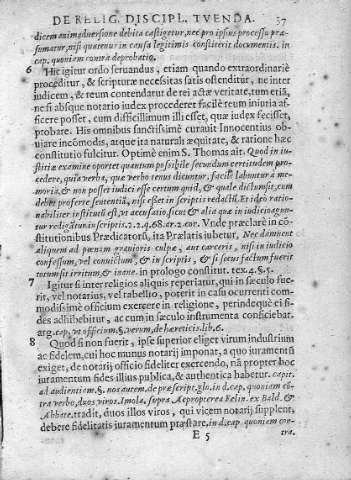 DE RELIG. DISCIPL. TVENDA. 37
dicem animaduersione debita castigetur, nec pro ipsius processu præ-
sumatur, nisi quatenus in causa legitimis constiterit documentis. in
cap. quoniam contra de probatio.
6 Hic igitur ordo seruandus, etiam quando extraordinariè
proceditur, & scripturæ necessitas satis ostenditur, ne inter
iudicem, & reum contendatur de rei actæ veritate, tum etiã,
ne si absque notario iudex procederet facilè reum iniuria af-
ficere posset, cum difficillimum illi esset, quæ iudex fecisset,
probare. His omnibus sanctissimè curauit Innocentius ob-
uiare incõmodis, atque ita naturali æquitate, & ratione hæc
constitutio fulcitur. Optimè enim S. Thomas ait. Quod in iu-
stitiæ examine oportet quantum possibile secundum certitudinem pro-
cedere, quia verba, quæ verbo tenus dicuntur, facile labuntur à me-
moria, & non posset iudici esse certum quid, & quale dictum sit, cum
debet proferre sententiã, nisi esset in scriptis redactũ. Et ideò ratio-
nabiliter institutũ est, vt accusatio, sicut & alia quæ in iudicio agun-
tur religãtur in scriptis. 2. 2. q. 68. ar. 2. cor. Vnde præclarè in cõ-
stitutionibus Prædicatorũ, ita Prælatis iubetur, Nec damnent
aliquem ad pœnam grauioris culpæ, aut carceris, nisi in iudicio
confessum, vel conuictum, & in scriptis, & si secus factum fuerit
totum sit irritum, & inane. in prologo constitut. tex. 4. §. 5.
7 Igitur si inter religiosos aliquis reperiatur, qui in sæculo fue-
rit, vel notarius, vel tabellio, poterit in casu occurrenti com-
modissimè officium exercere in religione, perindequè ei fi-
des adhibebitur, ac cum in sæculo instrumenta conficiebat.
arg. cap. vt officium. §. verum, de hæreticis. lib. 6.
8 Quod si non fuerit, ipse superior eliget virum industrium
ac fidelem, cui hoc munus notarij imponat, a quo iuramentũ
exiget, de notarij officio fideliter exercendo, nã propter hoc
iuramentum fides illius publica, & authentica habetur. capit.
ad audientiam. §. notatum, de præscript. glo. in d. cap. quoniam cõ-
tra verbo, duos viros. Imola, supra Aepropterea Felin. ex Bald. &
Abbate. tradit, duos illos viros, qui vicem notarij supplent,
debere fidelitatis iuramentum præstare, in d. cap. quoniam con-
E 5 tra.